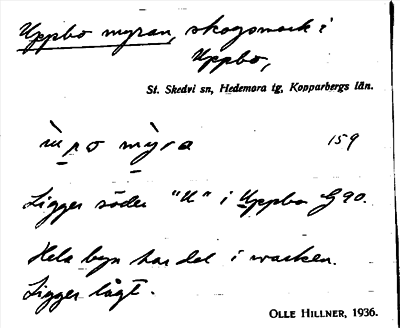 Uppbo myran, skogsmark i
Uppbo,
St. Skedvi sn, Hedemora tg, Kopparbergs län.
ùpo mỳra 159
Ligger söder "U" i Uppbo G 90.
Hela byn har del i marken.
Ligger lågt.
OLLE HILLNER, 1936.